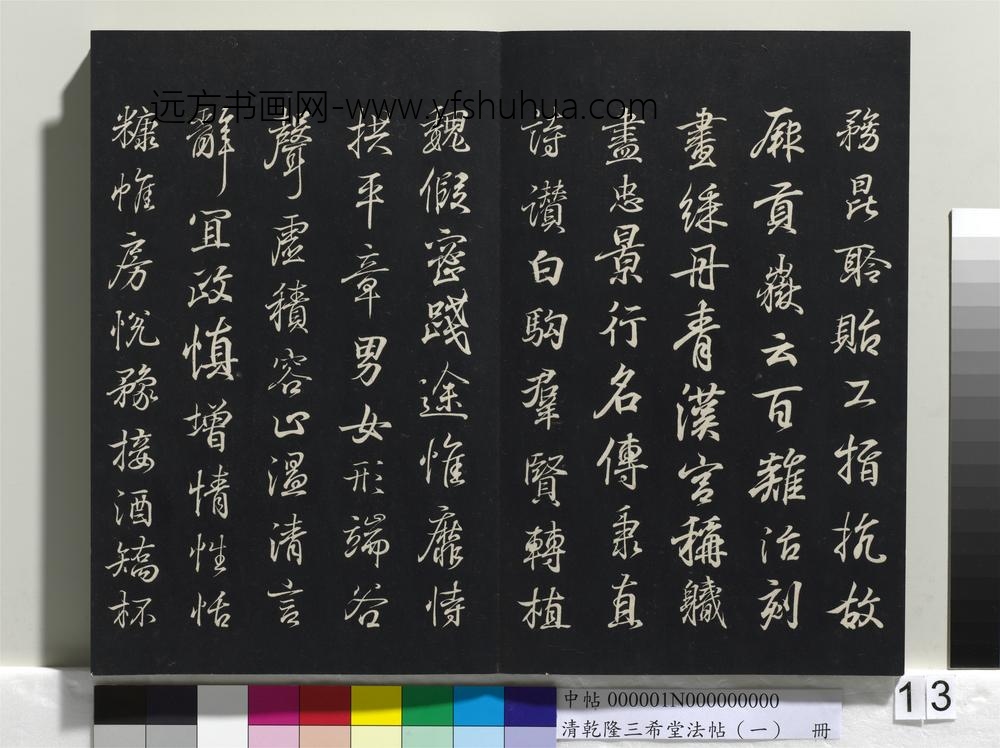 務昆聆貽工指抗故
厥貢嶽云百雞治刻
畫綵丹青漢宫稱軄
盡忠景行名傳秉直
詩讚白駒羣賢轉植
魏假密踐途惟靡恃
拱平章男女形端谷
聲虛積容止溫清言
辭宜政慎增情性恬
糠帷房悅豫接酒矯杯
远方书画网-www.yfshuhua.com
中帖 000001N000000000
清乾隆三希堂法帖（一） 冊
13